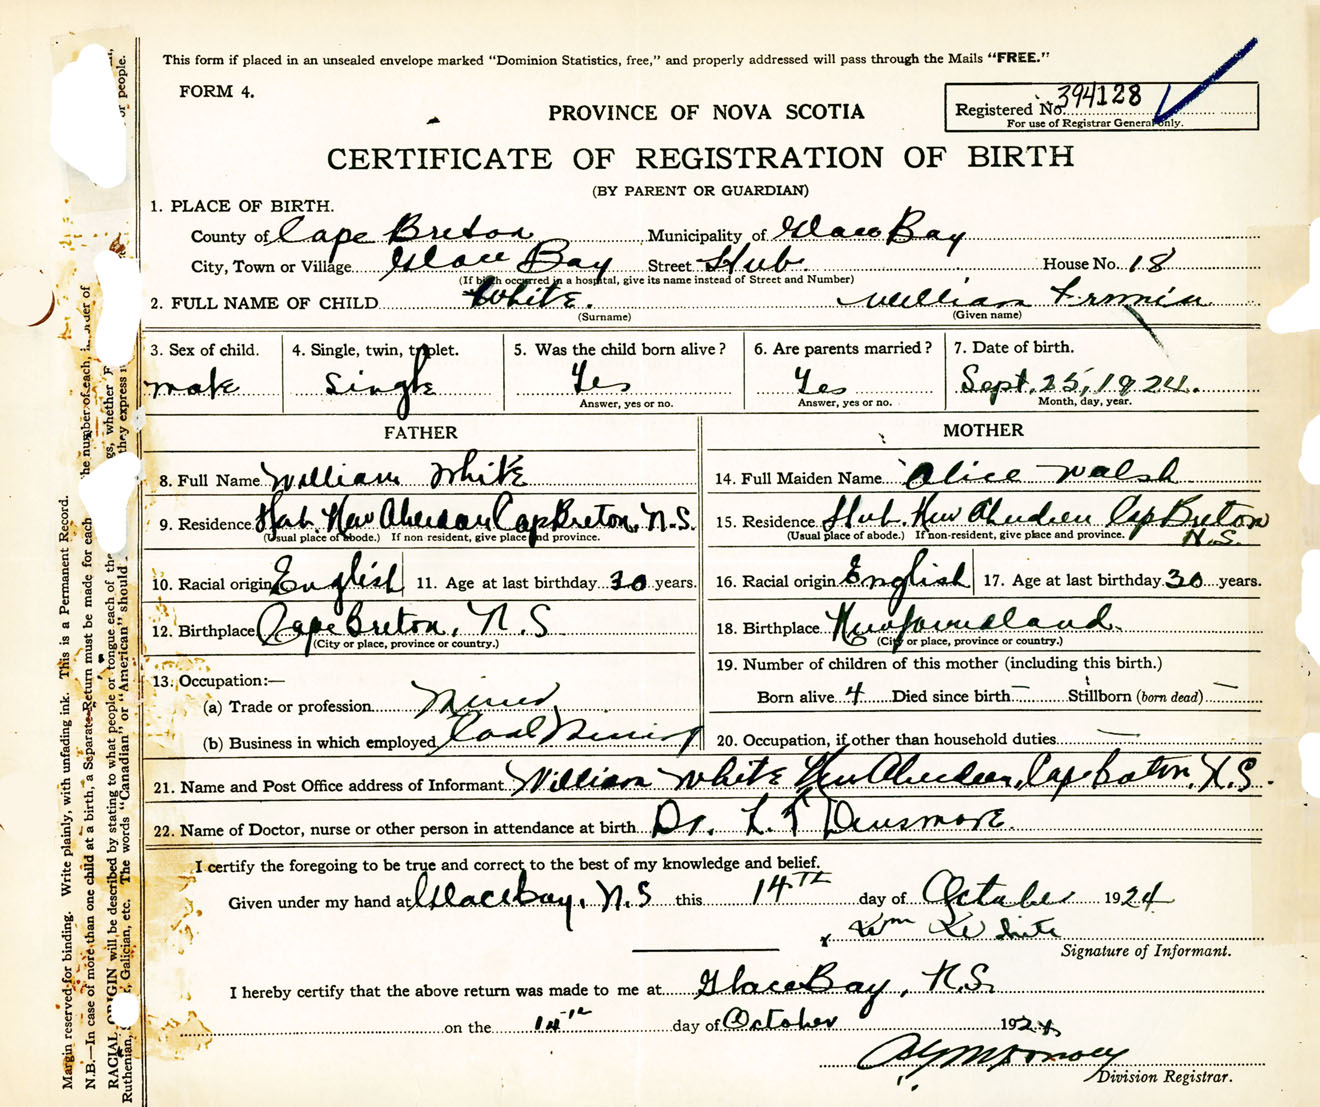 This form if placed in an unsealed envelope marked "Dominion Statistics, free," and properly addressed will pass through the Mails "FREE."
FORM 4.
Registered No. 394128
For use of Registrar General only.
PROVINCE OF NOVA SCOTIA
CERTIFICATE OF REGISTRATION OF BIRTH
(BY PARENT OR GUARDIAN)
1. PLACE OF BIRTH.
County of Cape Breton Municipality of Glace Bay
City, Town or Village Glace Bay Street Hub House No. 18
(If birth occurred in a hospital, give its name instead of Street and Number)
2. FULL NAME OF CHILD White. William Firmin
(Surname) (Given name)
3. Sex of child. 4. Single, twin, triplet. 5. Was the child born alive? 6. Are parents married? 7. Date of birth.
male single Yes Yes Sept. 25, 1924.
Answer, yes or no. Answer, yes or no. Month, day, year.
FATHER MOTHER
8. Full Name William White 14. Full Maiden Name Alice Walsh
9. Residence Hub. New Aberdeen Cape Breton, N.S. 15. Residence Hub. New Aberdeen Cap Breton N.S.
(Usual place of abode.) If non resident, give place and province. (Usual place of abode.) If non-resident, give place and province.
10. Racial origin English 11. Age at last birthday 30 years. 16. Racial origin English 17. Age at last birthday 30 years.
12. Birthplace Cape Breton, N.S 18. Birthplace Newfoundland.
(City or place, province or country.) (City or place, province or country.)
13. Occupation:— 19. Number of children of this mother (including this birth.)
(a) Trade or profession Miner Born alive 4 Died since birth — Stillborn (born dead) —
(b) Business in which employed Coal Mining 20. Occupation, if other than household duties —
21. Name and Post Office address of Informant William White New Aberdeen, Cape Breton, N.S.
22. Name of Doctor, nurse or other person in attendance at birth Dr. L. T Densmore.
I certify the foregoing to be true and correct to the best of my knowledge and belief.
Given under my hand at Glace Bay, N.S this 14TH day of October 1924
x Wm White
Signature of Informant.
I hereby certify that the above return was made to me at Glace Bay, N.S.
on the 14th day of October 1924
Division Registrar.
Margin reserved for binding. Write plainly, with unfading ink. This is a Permanent Record.
N.B.—In case of more than one child at a birth, a Separate Return must be made for each he number of each, in order of
RACIAL ORIGIN will be described by stating to what people or tongue each of the gs, whether F
Ruthenian, Galician, etc. The words "Canadian" or "American" should they express r or people.